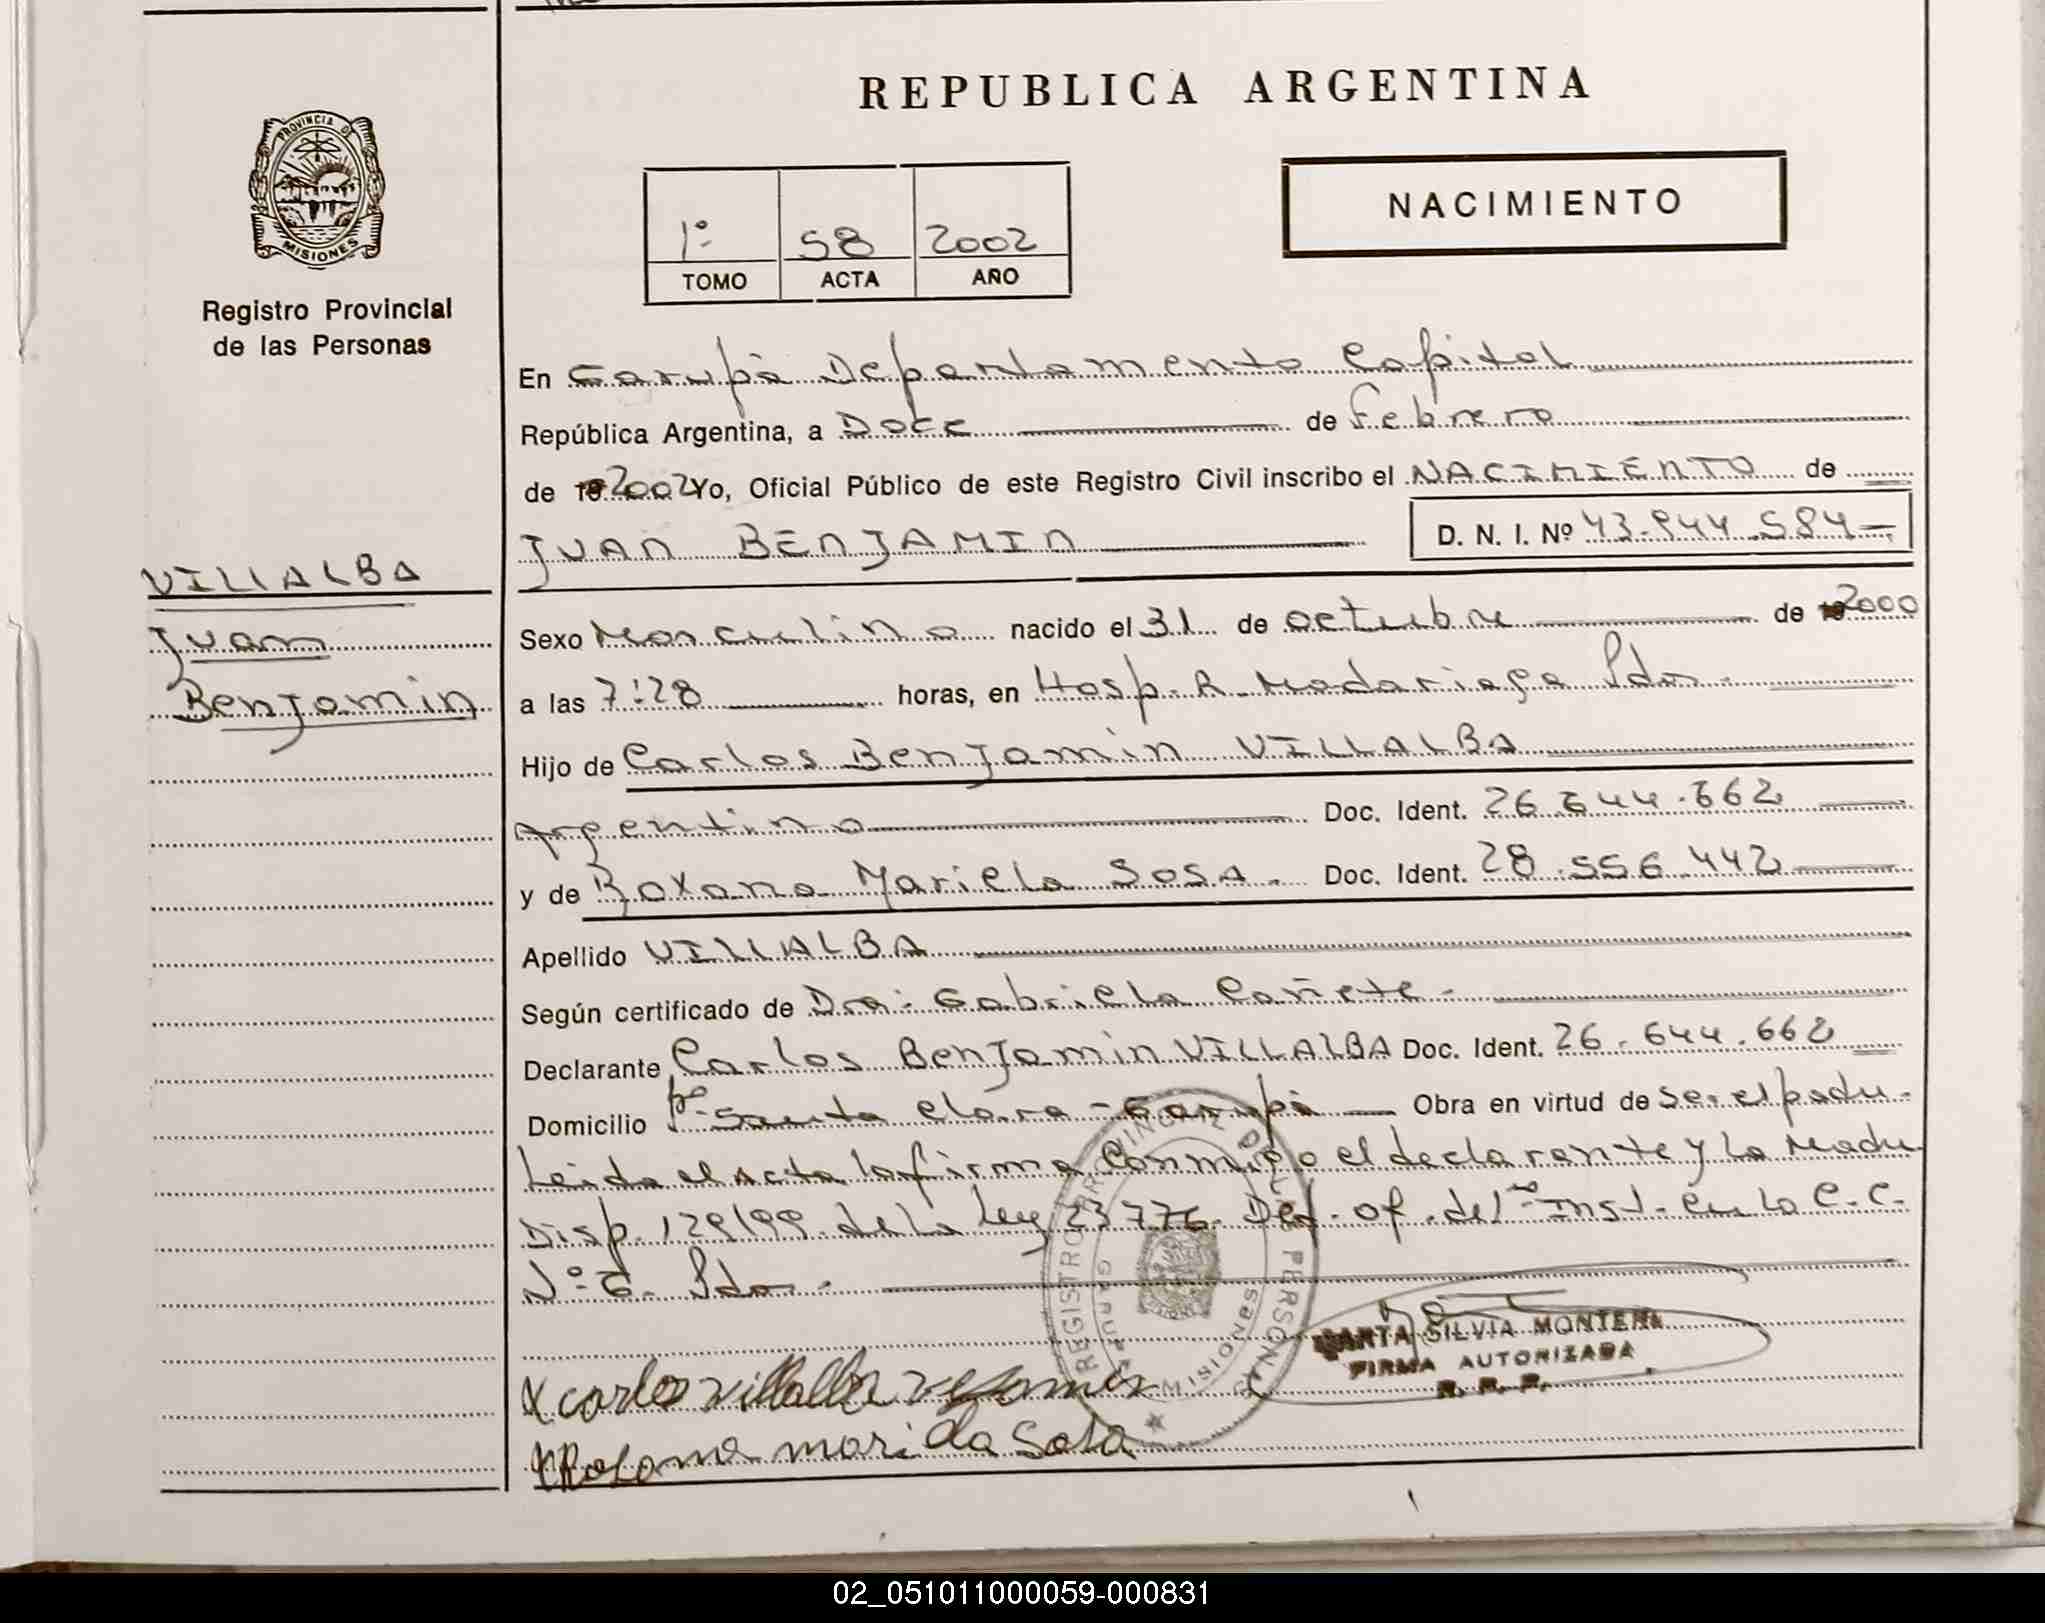 REPUBLICA ARGENTINA
PROVINCIA DE
MISIONES
Registro Provincial
de las Personas
NACIMIENTO
1º 58 2002
TOMO ACTA AÑO
En Garupá Departamento Capital
República Argentina, a Doce de Febrero
de 19 2002 Yo, Oficial Público de este Registro Civil inscribo el NACIMIENTO de
JUAN BENJAMIN D. N. I. Nº 43.944.584
VILLALBA
Juan
Benjamin
Sexo Masculino nacido el 31 de octubre de 2000
a las 7:28 horas, en Hosp. R. Madariaga Pdas.
Hijo de Carlos Benjamin VILLALBA
Argentino Doc. Ident. 26.644.662
y de Roxana Mariela SOSA. Doc. Ident. 28.556.442
Apellido VILLALBA
Según certificado de Dra. Gabriela Cañete.
Declarante Carlos Benjamin VILLALBA Doc. Ident. 26.644.662
Domicilio Bº Santa Clara - Garupá Obra en virtud de Ser el padre.
Leida el acta la firma conmigo el declarante y la Madre
Disp. 129/99 de la Ley 23776. Def. of. del 1ra Inst. en lo C.C.
Nº 6. Pdas.
REGISTRO PROVINCIAL DE LAS PERSONAS
GARUPA
MISIONES
MARTA SILVIA MONTERO
FIRMA AUTORIZADA
R. P. P.
x Carlos Villalba
x Roxana mariela Sosa
02_051011000059-000831